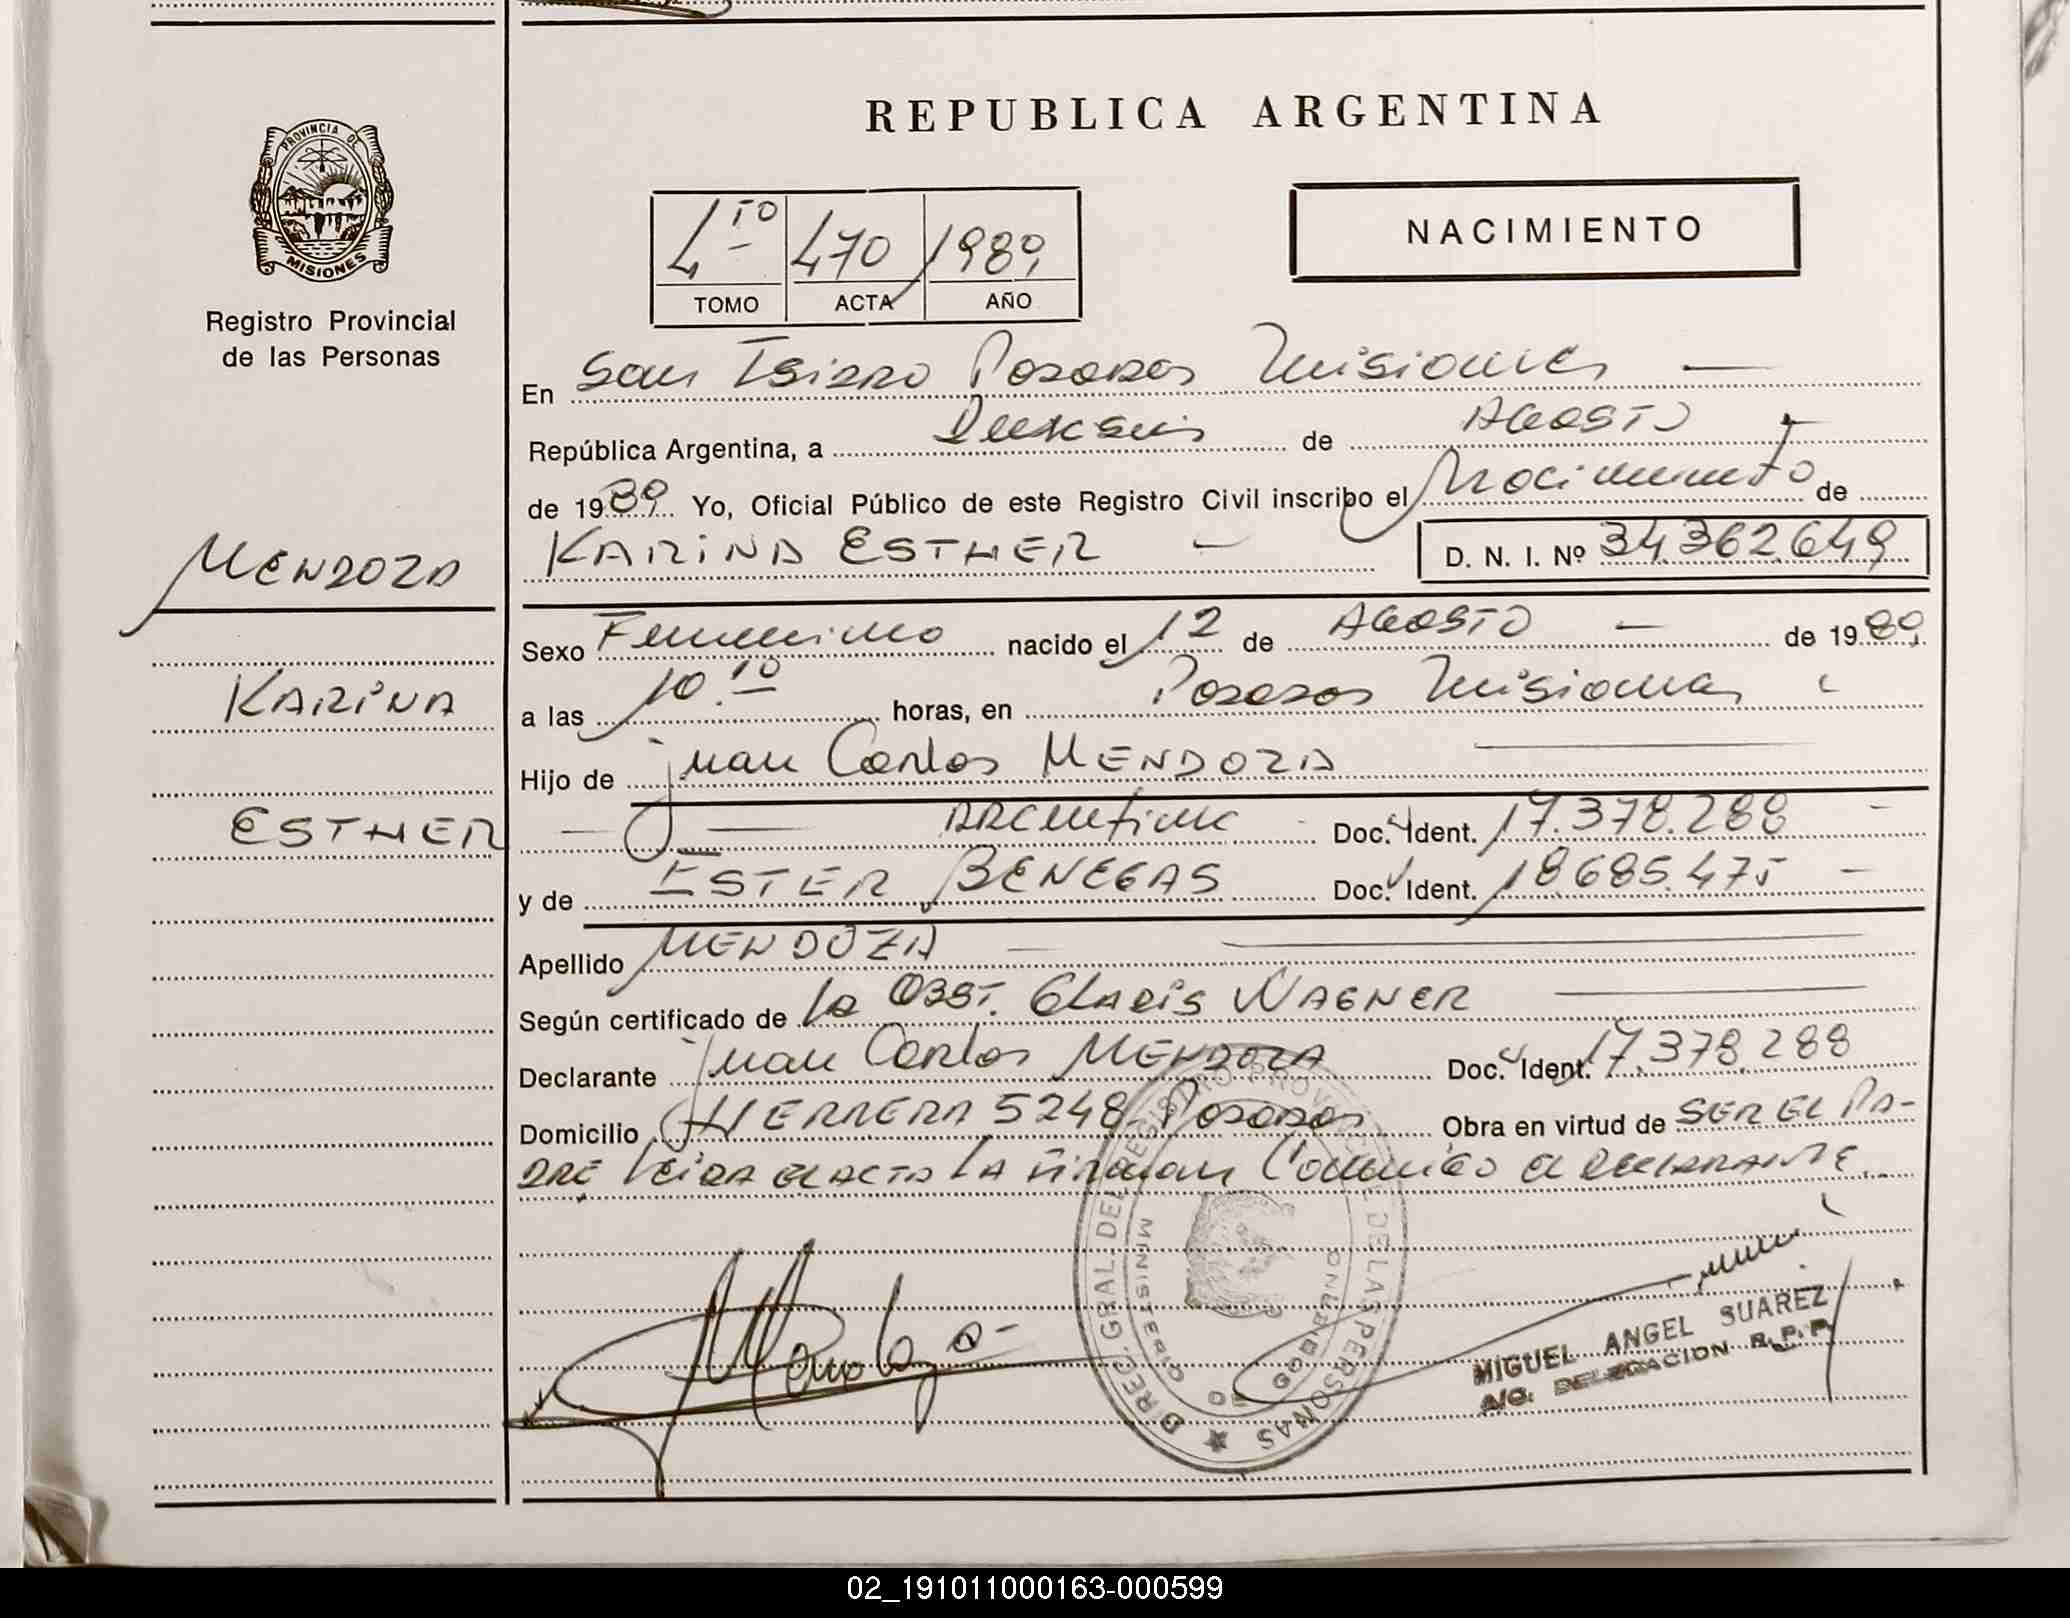 REPUBLICA ARGENTINA
PROVINCIA DE
MISIONES
Registro Provincial
de las Personas
4to 470 1989
TOMO ACTA AÑO
NACIMIENTO
En San Isidro Posadas Misiones —
República Argentina, a Dieciseis de AGOSTO
de 1989 Yo, Oficial Público de este Registro Civil inscribo el Nacimiento de
KARINA ESTHER — D. N. I. Nº 34.362.649
MENDOZA
KARINA
ESTHER
Sexo Femenino nacido el 12 de AGOSTO — de 1989
a las 10.10 horas, en Posadas Misiones
Hijo de Juan Carlos MENDOZA
— — ARGENTINO Doc. Ident. 17.378.288 —
y de ESTER BENEGAS Doc. Ident. 18.685.475 —
Apellido MENDOZA —
Según certificado de la OBST. GLADIS WAGNER
Declarante Juan Carlos MENDOZA Doc. Ident. 17.378.288
Domicilio HERRERA 5248 Posadas Obra en virtud de SER EL PA-
DRE Leida el ACTA LA firman Conmigo el DECLARANTE
DIREC. GRAL. DEL REGISTRO PROVINCIAL DE LAS PERSONAS
MINISTERIO DE GOBIERNO
Mendoza
MIGUEL ANGEL SUAREZ
A/C. DELEGACION R.P.P.
02_191011000163-000599